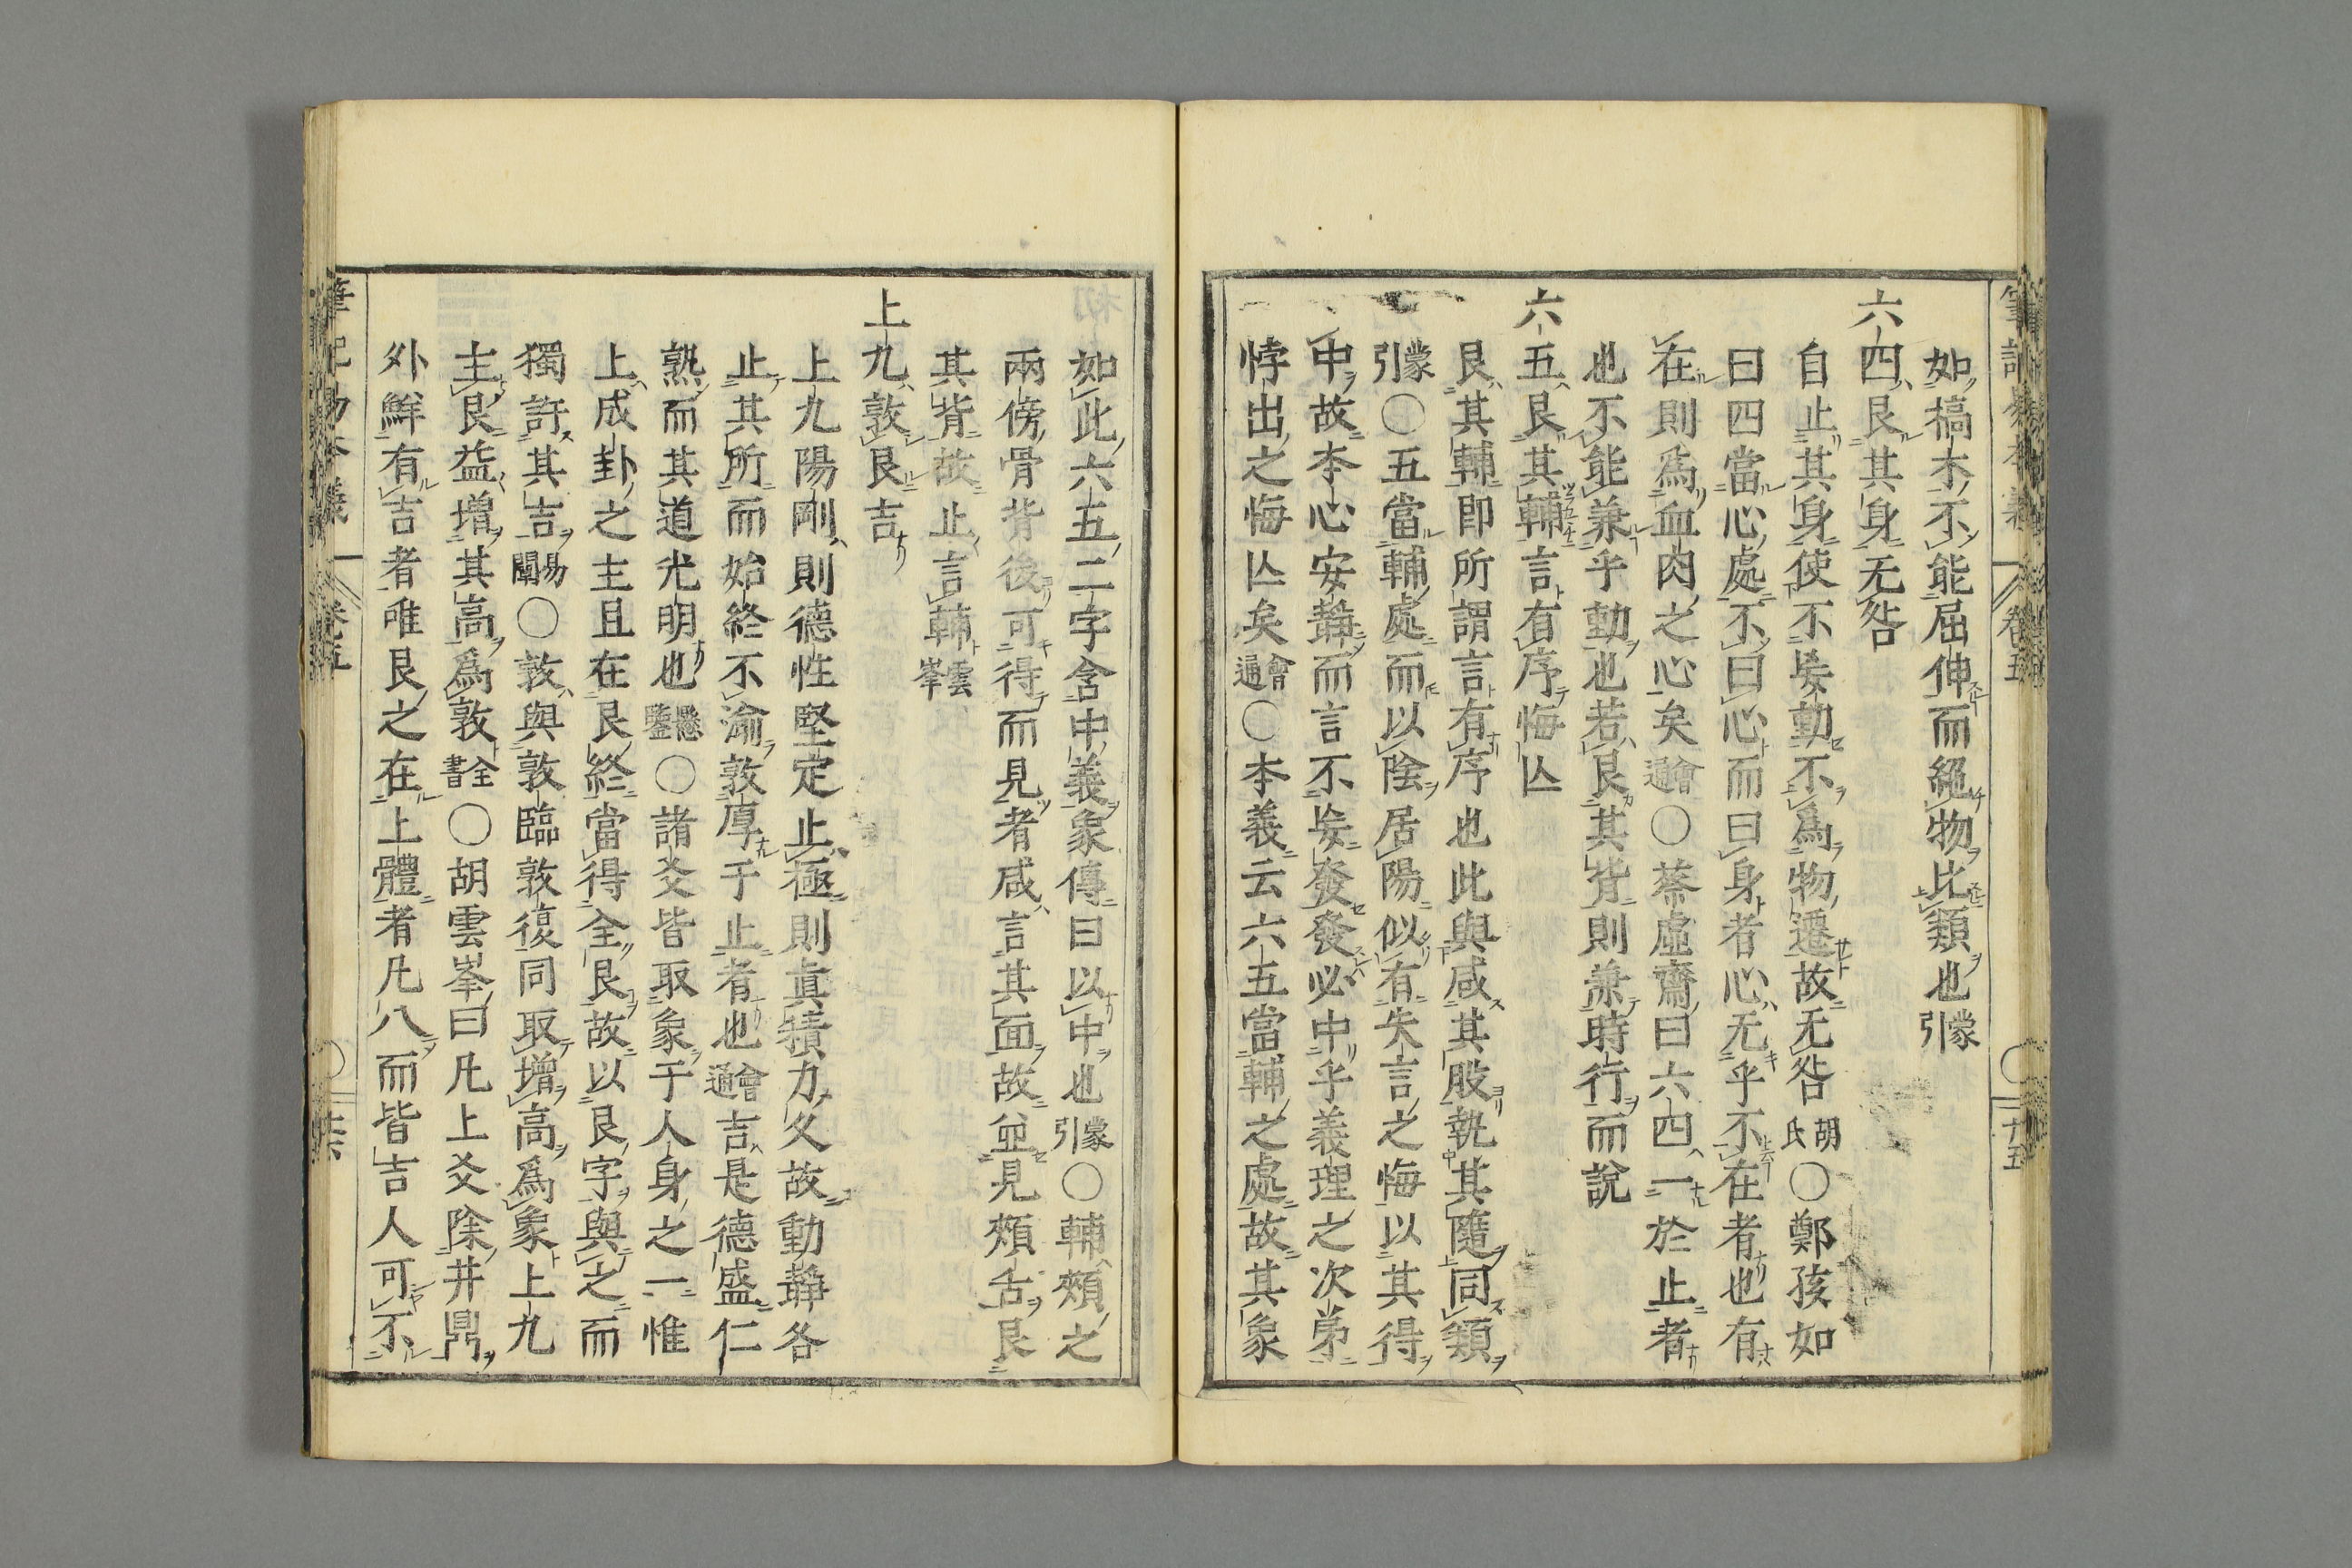 如槁木不能屈伸而絕物比類也蒙引
六四艮其身无咎
自止其身使不妄動不爲物遷故无咎胡氏○鄭孩如
曰四當心處不曰心而曰身者心无乎不在者也有
在則爲血肉之心矣會通○蔡虛齋曰六四一於止者
也不能兼乎動也若艮其背則兼時行而說
六五艮其輔言有序悔亾
艮其輔卽所謂言有序也此與咸其股執其隨同類
蒙引○五當輔處而以陰居陽似有失言之悔以其得
中故本心安靜而言不妄發發必中乎義理之次弟
悖出之悔亾矣會通○本義云六五當輔之處故其象
如此六五二字含中義象傳曰以中也蒙引○輔頰之
兩傍骨背後可得而見者咸言其面故並見頰舌艮
其背故止言輔雲峯
上九敦艮吉
上九陽剛則德性堅定止極則眞積力久故動靜各
止其所而始終不渝敦厚于止者也會通吉是德盛仁
熟而其道光明也懸鑒○諸爻皆取象于人身之一惟
上成卦之主且在艮終當得全艮故以艮字與之而
獨許其吉易聞○敦與敦臨敦復同取增高爲象上九
主艮益增其高爲敦全書○胡雲峯曰凡上爻除井鼎
外鮮有吉者唯艮之在上體者凡八而皆吉人可不
筆記易本義
卷五
十五